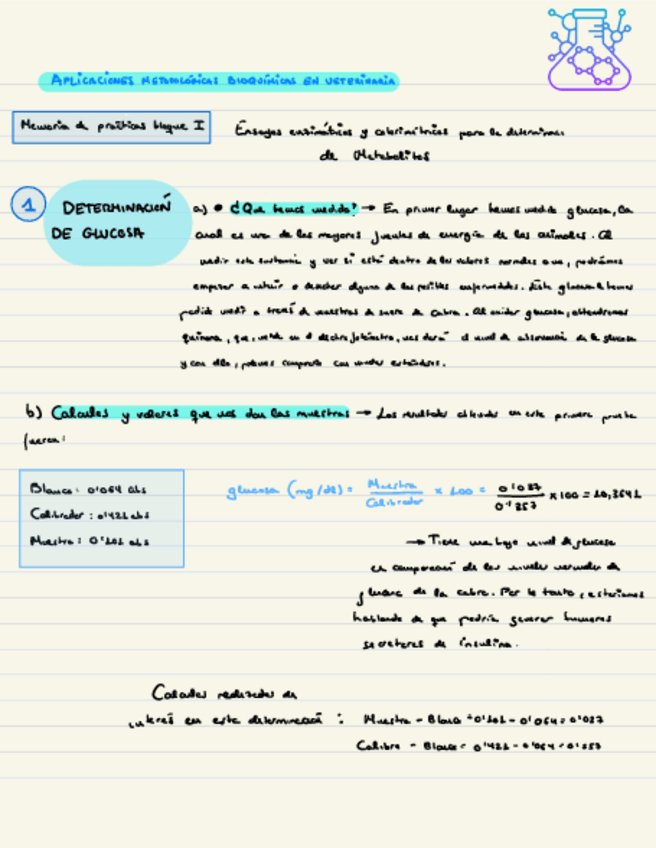 APLICACIONES METODOLÓGICAS BIOQUÍMICAS EN VETERINARIA
Memoria de prácticas bloque I
Ensayos enzimáticos y colorimétricos para la determinar
de Metabolitos
1 DETERMINACIÓN DE GLUCOSA
a) • ¿Que hemos medido? → En primer lugar hemos medido glucosa, la
cual es una de las mayores fuentes de energía de los animales. Al
medir esta sustancia y ver si está dentro de los valores normales o no, podríamos
empezar a valorar o detectar alguna de las posibles enfermedades. Esta glucosa la hemos
podido medir a través de muestras de suero de cabra. Al oxidar glucosa, obtendremos
quinona, que, en el nos dará el nivel de absorbancia de la glucosa
y con ello, podemos compararlo con niveles estándares.
b) Calculos y valores que nos dan las muestras → Los resultados obtenidos en esta primera prueba
fueron:
Blanco: 0'064 abs
Calibrador: 0'421 abs
Muestra: 0'101 abs
glucosa (mg/dl) = Muestra / Calibrador × 100 = 0'037 / 0'357 × 100 = 10,3641
→ Tiene un bajo nivel de glucosa
en comparación de los niveles normales de
glucosa de la cabra. Por lo tanto, estaríamos
hablando de que podría generar tumores
secretores de insulina.
Calculos realizados de
interés en esta determinación:
Muestra - Blanco = 0'101 - 0'064 = 0'037
Calibra - Blanco = 0'421 - 0'064 = 0'357